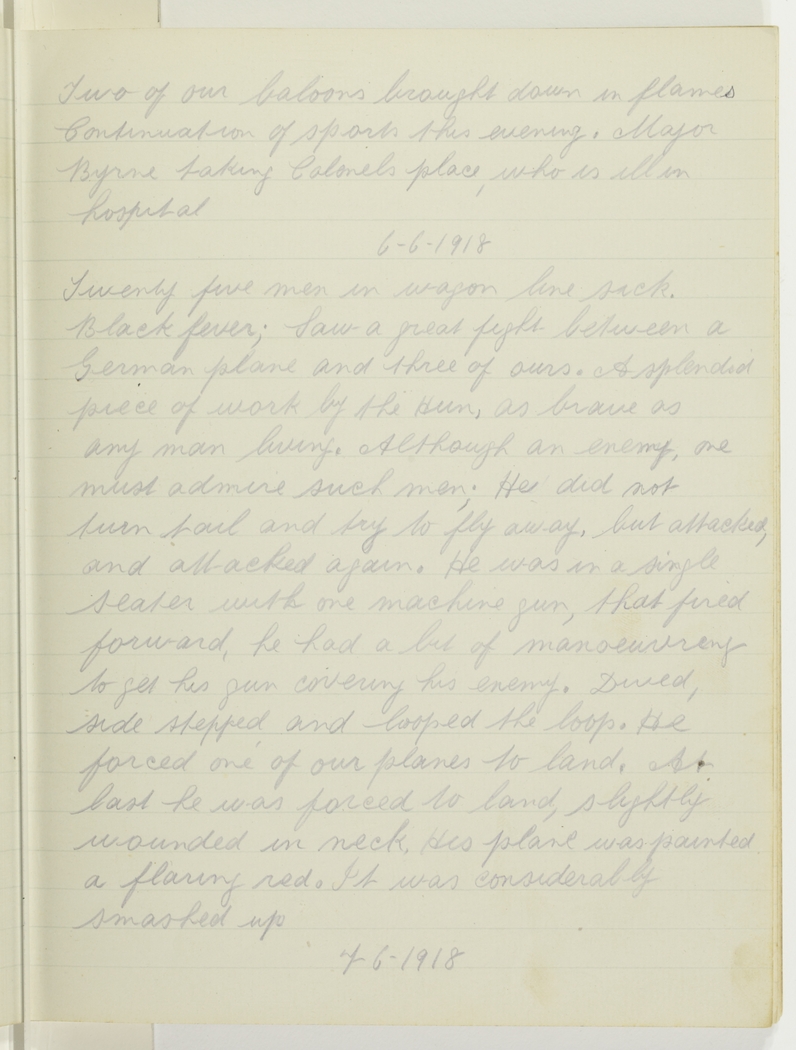 Two of our baloons brought down in flames
Continuation of sports this evening. Major
Byrne taking Colonels place, who is ill in
hospital
6-6-1918
Twenty five men in wagon line sick.
Black fever; Saw a great fight between a
German plane and three of ours. A splendid
piece of work by the Hun, as brave as
any man living. Although an enemy, one
must admire such men; He did not
turn tail and try to fly away, but attacked,
and attacked again. He was in a single
seater with one machine gun, that fired
forward, he had a bit of manoeuvreng
to get his gun covering his enemy. Dived,
side stepped and looped the loop. He
forced one of our planes to land. At
last he was forced to land, slightly
wounded in neck. His plane was painted
a flaring red. It was considerably
smashed up
7-6-1918